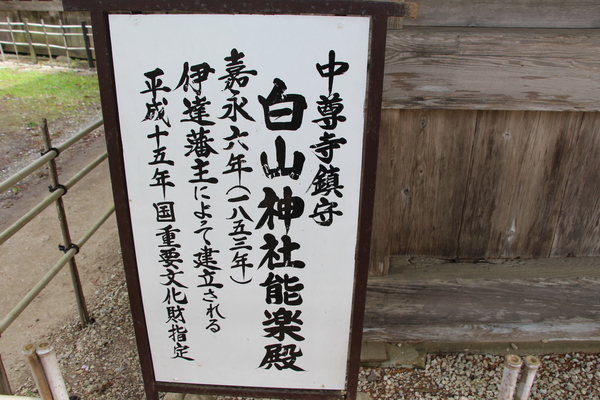 中尊寺鎮守
白山神社能楽殿
嘉永六年(一八五三年)
伊達藩主によって建立される
平成十五年国重要文化財指定